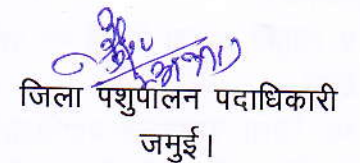 जिला पशुपालन पदाधिकारी
जमुई।